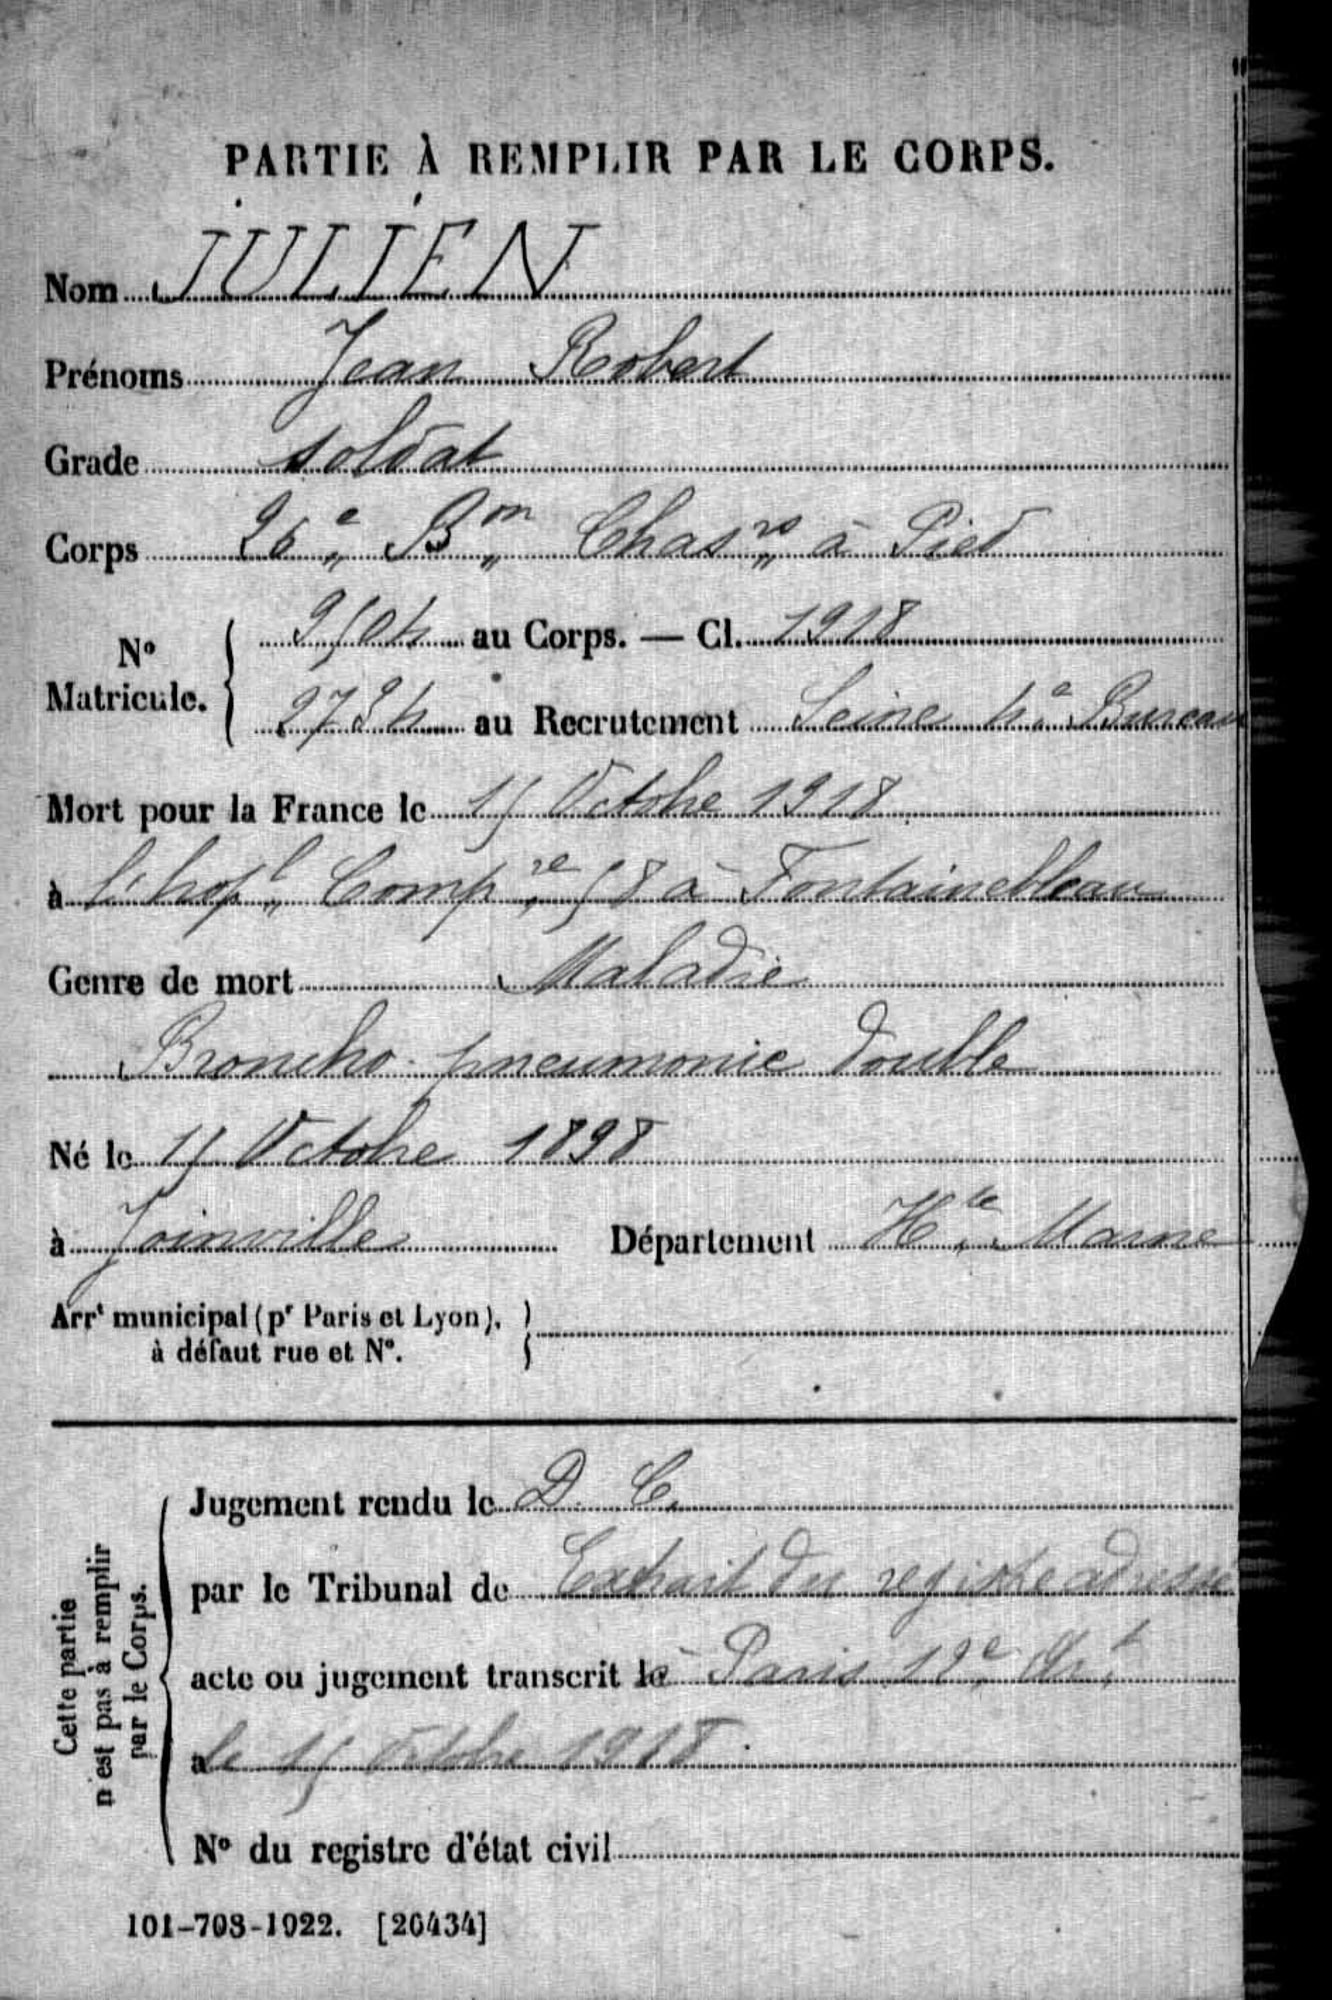 PARTIE À REMPLIR PAR LE CORPS.
Nom JULIEN
Prénoms Jean Robert
Grade soldat
Corps 26e Bon Chasrs à Pied
No Matricule. 9504 au Corps. — Cl. 1918
2784 au Recrutement Seine 4e Bureau
Mort pour la France le 15 Octobre 1918
à l'hopl Compre 58 à Fontainebleau
Genre de mort Maladie
Broncho-pneumonie double
Né le 15 Octobre 1898
à Joinville Département Hte Marne
Arrt municipal (pr Paris et Lyon),
à défaut rue et No.
Cette partie
n'est pas à remplir
par le Corps.
Jugement rendu le D. C.
par le Tribunal de Extrait du registre adressé
acte ou jugement transcrit le à Paris 12e Art
à le 15 Octobre 1918.
No du registre d'état civil
101-708-1922. [26434]